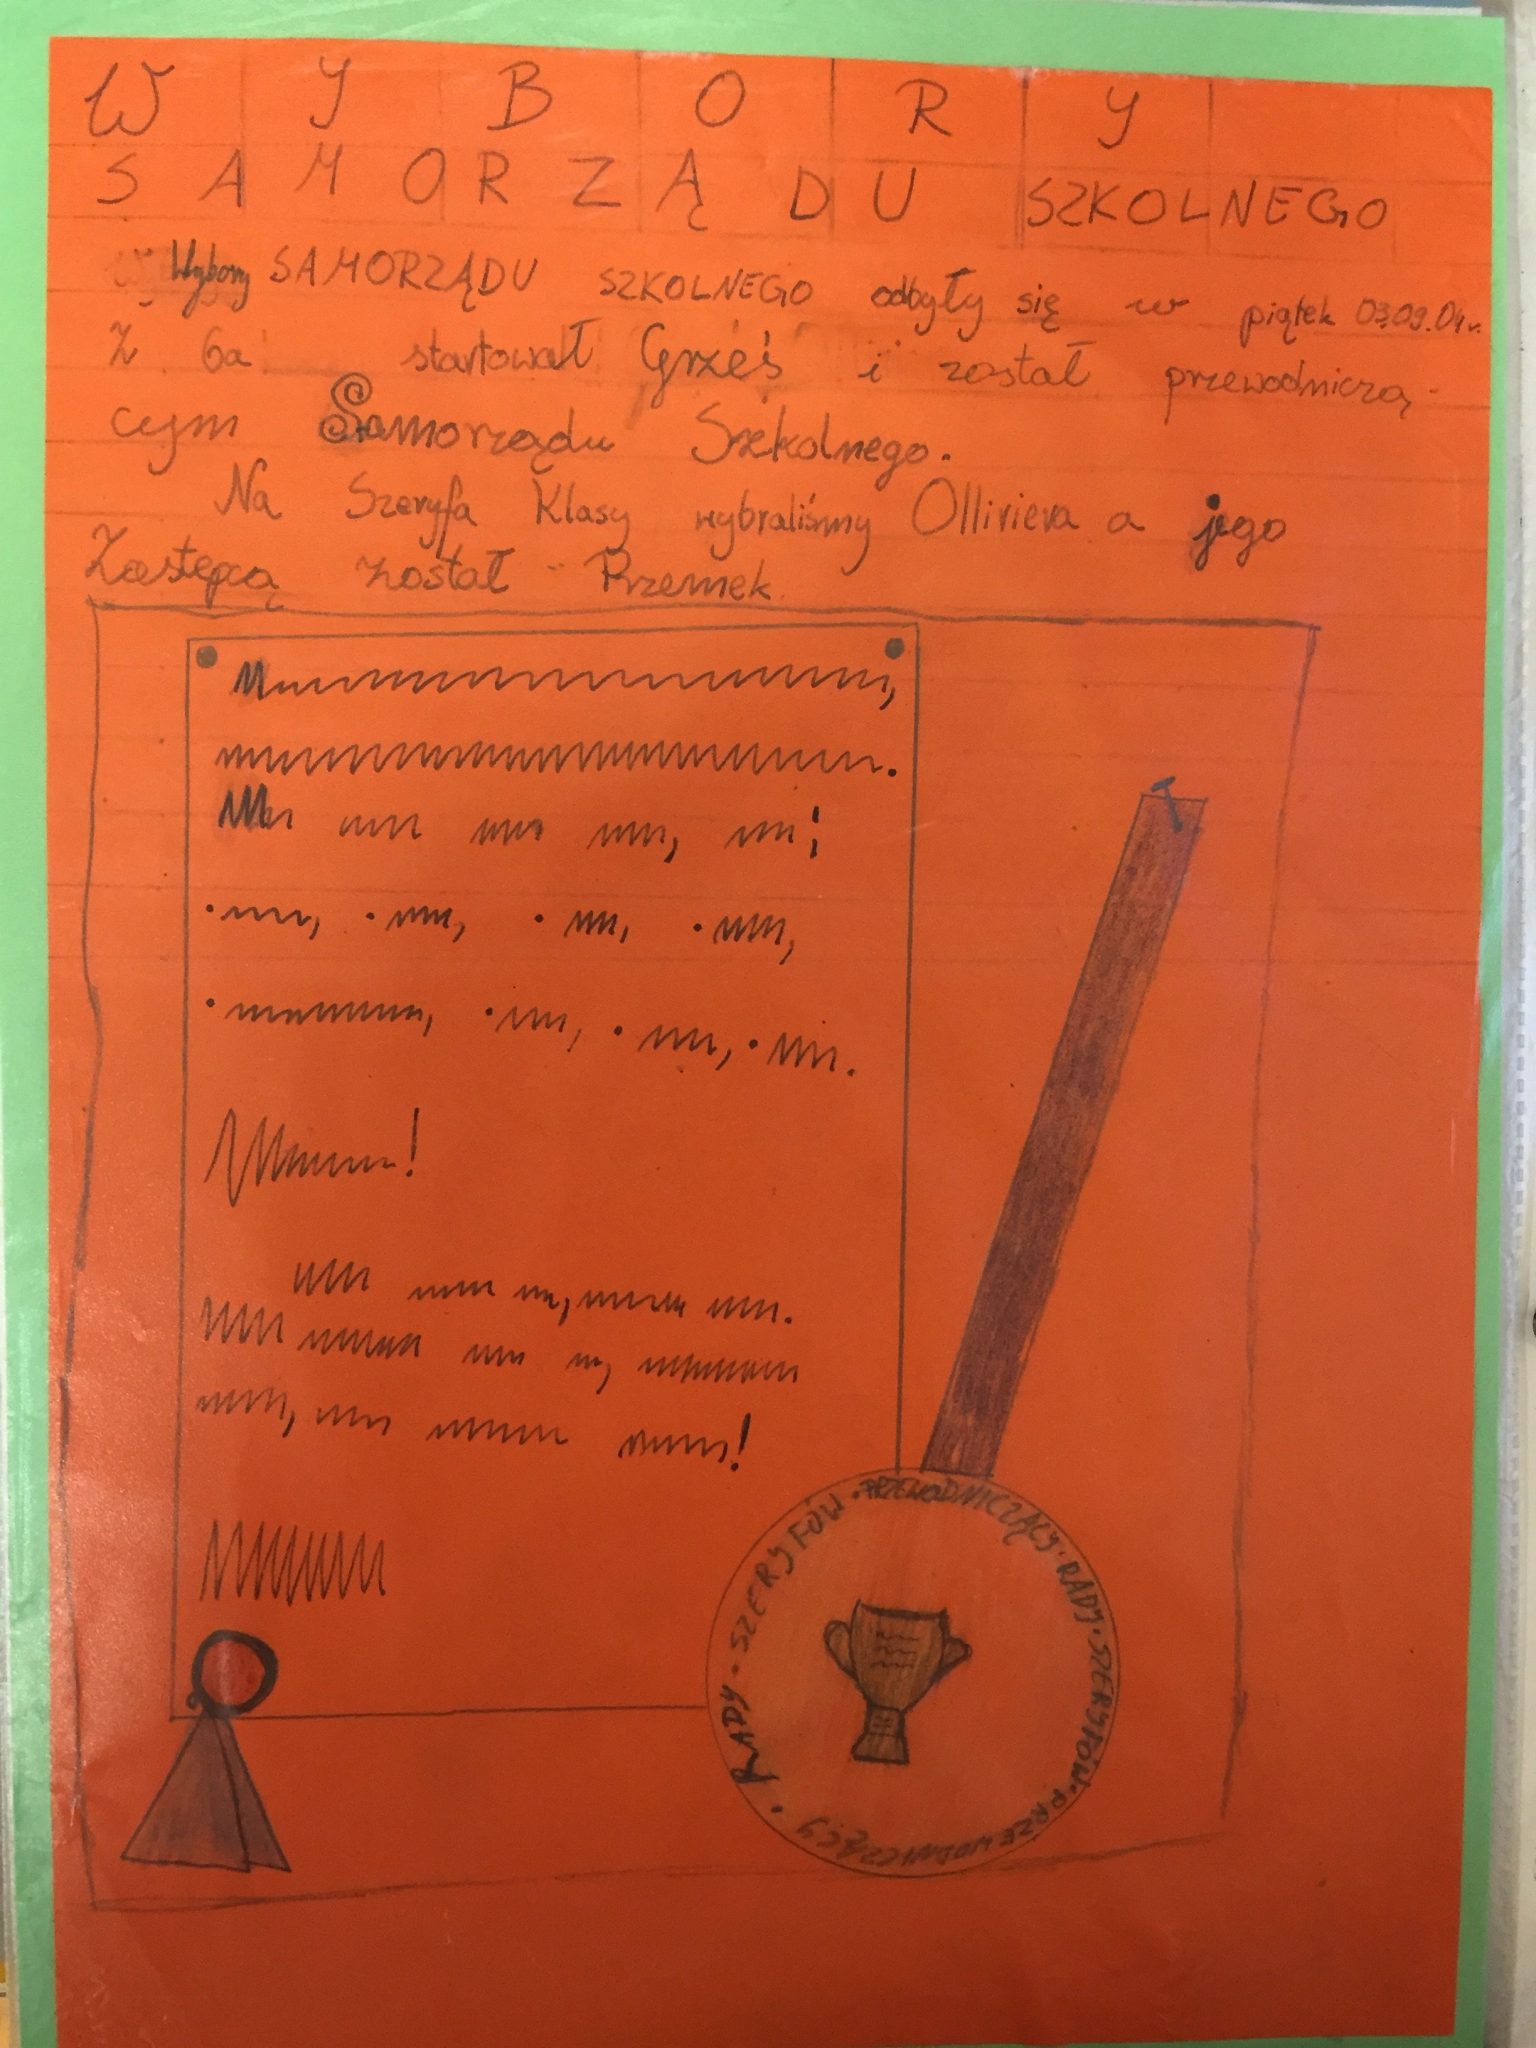 WYBORY
SAMORZĄDU SZKOLNEGO
Wybory SAMORZĄDU SZKOLNEGO odbyły się w piątek 03.09.04r.
Z 6a startował Grześ i został przewodniczą-
cym Samorządu Szkolnego.
Na Szeryfa Klasy wybraliśmy Olliviera a jego
Zastępcą został Przemek.
PRZEWODNICZĄCY · RADY · SZERYFÓW · PRZEWODNICZĄCY · RADY · SZERYFÓW ·